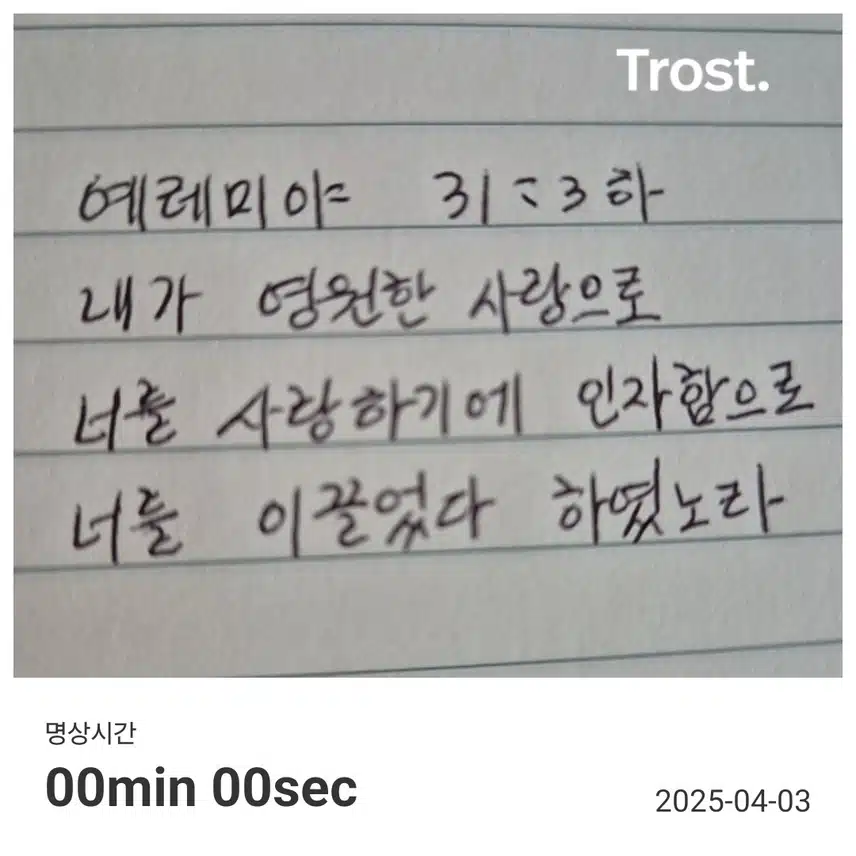 Trost.
예레미야 31:3하
내가 영원한 사랑으로
너를 사랑하기에 인자함으로
너를 이끌었다 하였노라
명상시간
00min 00sec
2025-04-03